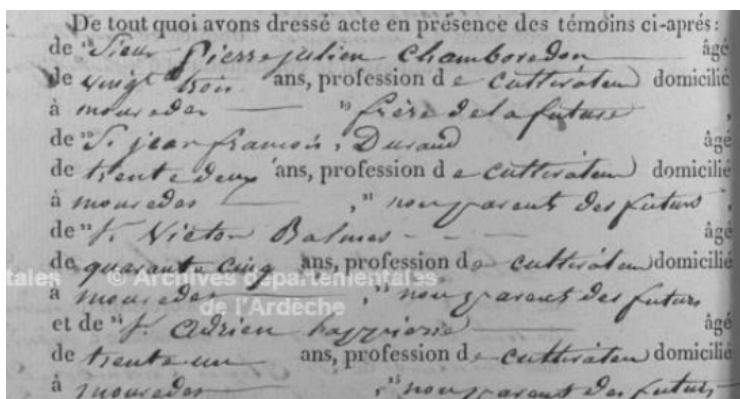 De tout quoi avons dressé acte en présence des témoins ci-aprés:
de 18 Sieur Pierre julien Chamboredon âgé
de vingt trois ans, profession de cultivateur domicilié
à mouredes 19 frère de la future,
de 20 S. jean françois, Durand âgé
de trente deux ans, profession de cultivateur domicilié
à mouredes, 21 non parents des futurs,
de 22 S. Victor Balmes âgé
de quarante cinq ans, profession de cultivateur domicilié
à mouredes, 23 non parent des futurs
et de 24 S. Adrien âgé
de trente un ans, profession de cultivateur domicilié
à mouredes, 25 non parent des futurs
tales © Archives départementales
de l'Ardèche